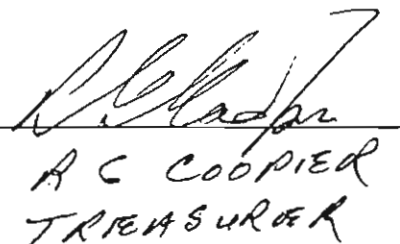 R C COOPER
TREASURER